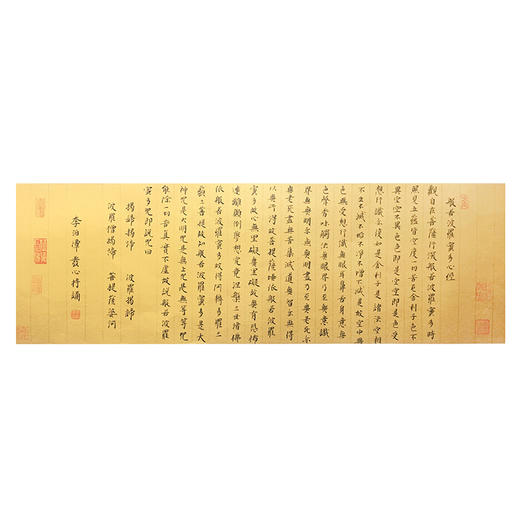 般若波羅蜜多心經
觀自在菩薩行深般若波羅蜜多時
照見五蘊皆空度一切苦厄舍利子色不
異空空不異色色即是空空即是色受
想行識亦復如是舍利子是諸法空相
不生不滅不垢不淨不增不減是故空中無
色無受想行識無眼耳鼻舌身意無
色聲香味觸法無眼界乃至無意識
界無無明亦無無明盡乃至無老死亦
無老死盡無苦集滅道無智亦無得
以無所得故菩提薩埵依般若波羅
蜜多故心無罣礙無罣礙故無有恐怖
遠離顛倒夢想究竟涅槃三世諸佛
依般若波羅蜜多故得阿耨多羅三
藐三菩提故知般若波羅蜜多是大
神咒是大明咒是無上咒是無等等咒
能除一切苦真實不虛故說般若波羅
蜜多咒即說咒曰
揭諦揭諦 波羅揭諦
波羅僧揭諦 菩提薩婆訶
李泊潭 發心持誦